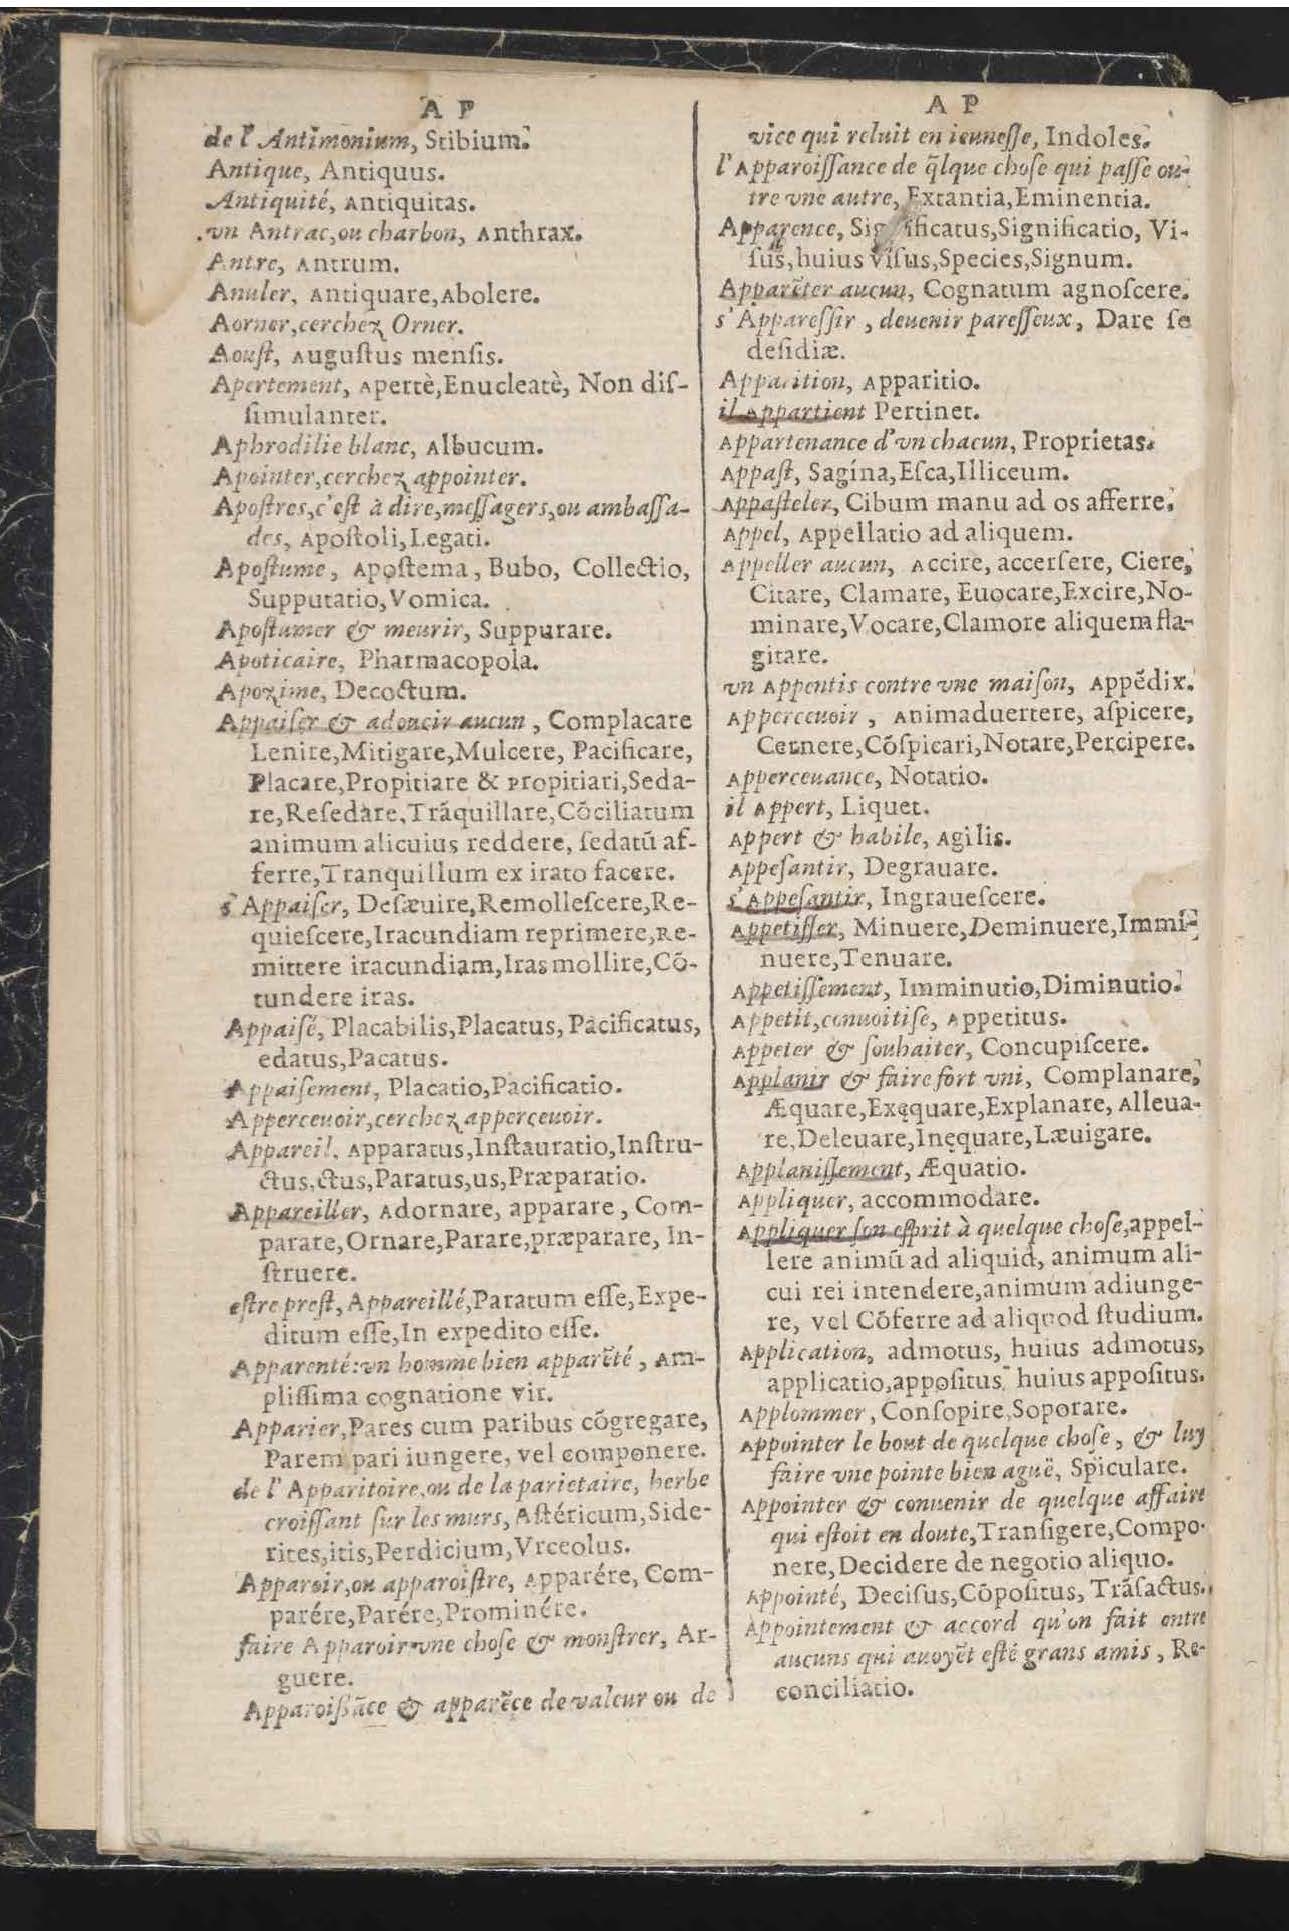 A P
de l'Antimonium, Stibium.
Antique, Antiquus.
Antiquité, Antiquitas.
vn Antrac, ou charbon, Anthrax.
Antre, Antrum.
Anuler, Antiquare, Abolere.
Aorner, cerchez Orner.
Aoust, Augustus mensis.
Apertement, Apertè, Enucleatè, Non dis-
simulanter.
Aphrodilie blanc, Albucum.
Apointer, cerchez appointer.
Apostres, c'est à dire, messagers, ou ambassa-
des, Apostoli, Legati.
Apostume, Apostema, Bubo, Collectio,
Supputatio, Vomica.
Apostumer & meurir, Suppurare.
Apoticaire, Pharmacopola.
Apozime, Decoctum.
Appaiser & adoucir aucun, Complacare
Lenire, Mitigare, Mulcere, Pacificare,
Placare, Propitiare & propitiari, Seda-
re, Resedare, Trãquillare, Cõciliatum
animum alicuius reddere, sedatũ af-
ferre, Tranquillum ex irato facere.
s'Appaiser, Desæuire, Remollescere, Re-
quiescere, Iracundiam reprimere, Re-
mittere iracundiam, Iras mollire, Cõ-
tundere iras.
Appaisé, Placabilis, Placatus, Pacificatus,
edatus, Pacatus.
Appaisement, Placatio, Pacificatio.
Appercevoir, cerchez apperceuoir.
Appareil, Apparatus, Instauratio, Instru-
ctus, ctus, Paratus, us, Præparatio.
Appareiller, Adornare, apparare, Com-
parare, Ornare, Parare, præparare, In-
struere.
estre prest, Appareillé, Paratum esse, Expe-
ditum esse, In expedito esse.
Apparenté: vn homme bien apparẽté, Am-
plissima cognatione vir.
Apparier, Pares cum paribus cõgregare,
Parem pari iungere, vel componere.
de l'Apparitoire, ou de la parietaire, herbe
croissant sur les murs, Astéricum, Side-
rites, itis, Perdicium, Vrceolus.
Apparoir, ou apparoistre, Apparére, Com-
parére, Parére, Prominére.
faire Apparoir vne chose & monstrer, Ar-
guere.
Apparoissãce & apparẽce de valeur ou de
A P
vice qui reluit en ieunesse, Indoles.
l'Apparoissance de q̃lque chose qui passe ou-
tre vne autre, Extantia, Eminentia.
Apparence, Significatus, Significatio, Vi-
sus, huius visus, Species, Signum.
Apparẽter aucun, Cognatum agnoscere.
s'Apparessir, deuenir paresseux, Dare se
desidiæ.
Apparition, Apparitio.
il Appartient Pertinet.
Appartenance d'vn chacun, Proprietas.
Appast, Sagína, Esca, Illiceum.
Appasteler, Cibum manu ad os afferre.
Appel, Appellatio ad aliquem.
Appeller aucun, Accire, accersere, Ciere,
Citare, Clamare, Euocare, Excire, No-
minare, Vocare, Clamore aliquem fla-
gitare.
vn Appentis contre vne maison, Appẽdix.
Apperceuoir, Animaduertere, aspicere,
Cernere, Cõspicari, Notare, Percipere.
Apperceuance, Notatio.
il Appert, Liquet.
Appert & habile, Agilis.
Appesantir, Degrauare.
s'Appesantir, Ingrauescere.
Appetisser, Minuere, Deminuere, Immi-
nuere, Tenuare.
Appetissement, Imminutio, Diminutio.
Appetit, conuoitise, Appetitus.
Appeter & souhaiter, Concupiscere.
Applanir & faire fort vni, Complanare,
Æquare, Exęquare, Explanare, Alleua-
re, Deleuare, Inęquare, Læuigare.
Applanissement, Æquatio.
Appliquer, accommodare.
Appliquer son esprit à quelque chose, appel-
lere animũ ad aliquid, animum ali-
cui rei intendere, animum adiunge-
re, vel Cõferre ad aliquod studium.
Application, admotus, huius admotus,
applicatio, appositus, huius appositus.
Applommer, Consopire, Soporare.
Appointer le bout de quelque chose, & luy
faire vne pointe bien aguë, Spiculare.
Appointer & conuenir de quelque affaire
qui estoit en doute, Transigere, Compo-
nere, Decidere de negotio aliquo.
Appointé, Decisus, Cõpositus, Trãsactus.
Appointement & accord qu'on fait entre
aucuns qui auoyẽt esté grans amis, Re-
conciliatio.